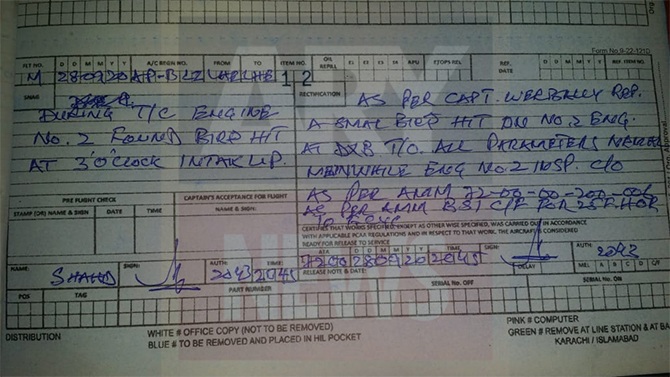 Form No.9-22-1210
FLT NO. D D M M Y Y A/C REGN NO. FROM TO ITEM NO. OIL REFILL E1 E2 E3 E4 APU F/TOPS REL. REF. DATE D D M M Y Y REF. ITEM NO.
M 280920 AP-BLZ LHE LHE 1 2
SNAG RECTIFICATION
DURING T/C ENGINE
NO. 2 FOUND BIRD HIT
AT 3'O'CLOCK INTAKE LIP.
AS PER CAPT. VERBALLY REP.
A SMALL BIRD HIT ON NO.2 ENG.
AT DXB T/O. ALL PARAMETERS NORMAL
MEANWHILE ENG NO.2 INSP. C/O
AS PER AMM 72-00-00-200-006
AS PER AMM B.S.I C/F FOR 25 F.HOR
PRE FLIGHT CHECK CAPTAIN'S ACCEPTANCE FOR FLIGHT
STAMP (OR) NAME & SIGN DATE TIME NAME & SIGN.
CERTIFIES THAT WORKS SPECIFIED, EXCEPT AS OTHER WISE SPECIFIED, WAS CARRIED OUT IN ACCORDANCE
WITH APPLICABLE PCAA REGULATIONS AND IN RESPECT TO THAT WORK, THE AIRCRAFT IS CONSIDERED
READY FOR RELEASE TO SERVICE
ATA D D M M Y Y TIME: SIGN: AUTH:
7200 280920 2045 2043
NAME: SHAHID SIGN: AUTH: 2043 TIME: 2045
RELEASE NOTE & DATE: DELAY MEL A B C D C/F
POS TAG PART NUMBER SERIAL NO. OFF SERIAL NO. ON
DISTRIBUTION
WHITE # OFFICE COPY (NOT TO BE REMOVED)
BLUE # TO BE REMOVED AND PLACED IN HIL POCKET
PINK # COMPUTER
GREEN # REMOVE AT LINE STATION & AT BA
KARACHI / ISLAMABAD
ARY
NEWS